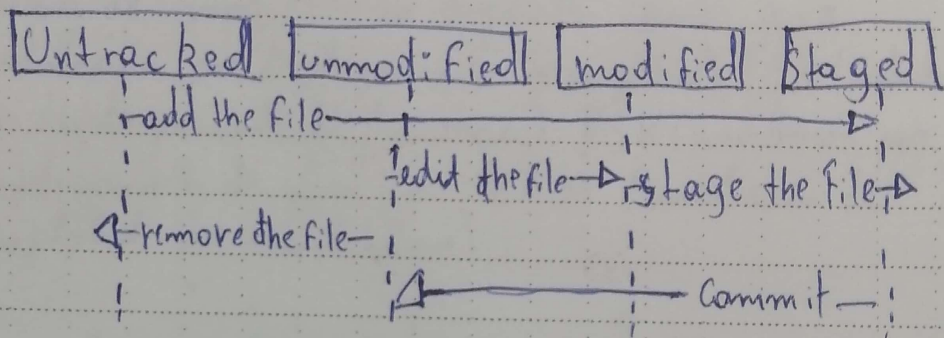 Untracked unmodified modified Staged
add the file
edit the file stage the file
remove the file
Commit